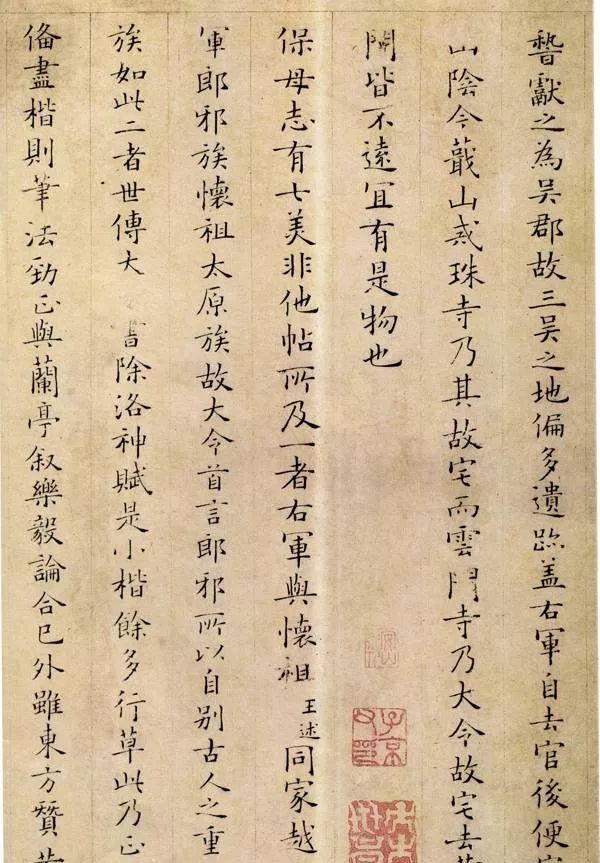 誓獻之為吳郡故三吳之地偏多遺跡蓋右軍自去官後便
山陰今蕺山戒珠寺乃其故宅而雲門寺乃大令故宅去
皆不遠冝有是物也
保母志有七美非他帖所及一者右軍與懷祖王述同家越
軍郎邪族懷祖太原族故大令首言郎邪所以自別古人之重
族如此二者世傳大 書除洛神賦是小楷餘多行草此乃正
備盡楷則筆法勁正與蘭亭叙樂毅論合已外雖東方贊
子京父印